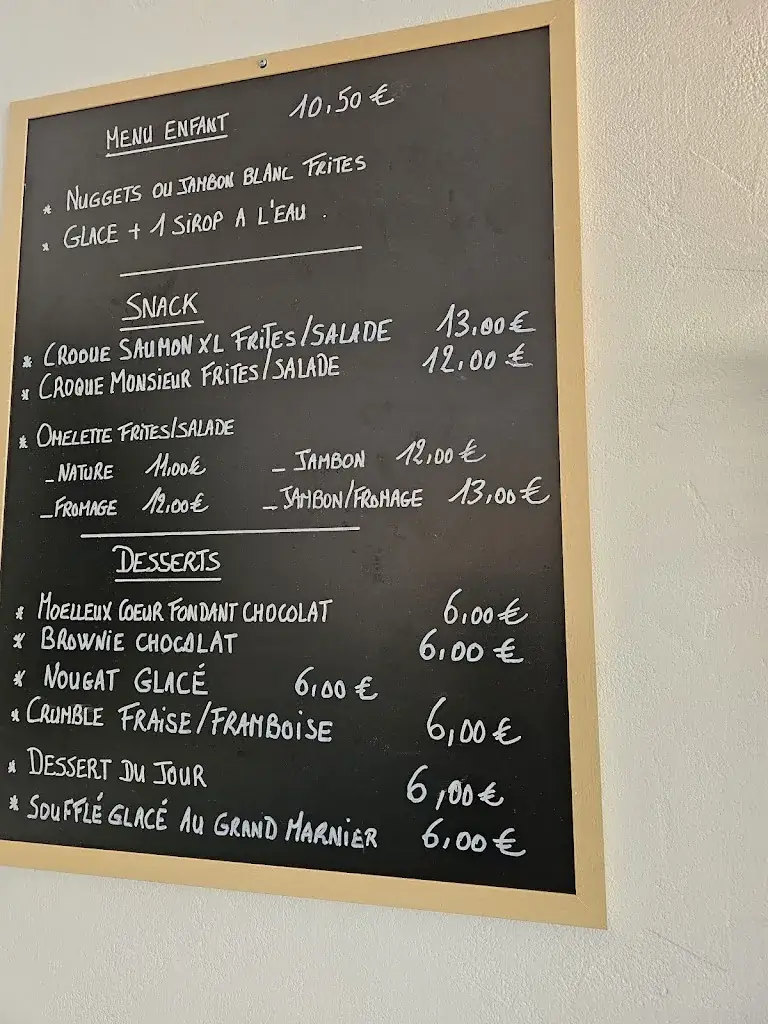 MENU ENFANT 10,50 €
* NUGGETS OU JAMBON BLANC FRITES
* GLACE + 1 SIROP A L'EAU .
SNACK
* CROQUE SAUMON XL FRITES/SALADE 13,00 €
* CROQUE MONSIEUR FRITES/SALADE 12,00 €
* OMELETTE FRITES/SALADE
- NATURE 11,00€ - JAMBON 12,00 €
- FROMAGE 12,00€ - JAMBON/FROMAGE 13,00 €
DESSERTS
* MOELLEUX COEUR FONDANT CHOCOLAT 6,00 €
* BROWNIE CHOCOLAT 6,00 €
* NOUGAT GLACÉ 6,00 €
* CRUMBLE FRAISE/FRAMBOISE 6,00 €
* DESSERT DU JOUR 6,00 €
* SOUFFLÉ GLACÉ AU GRAND MARNIER 6,00 €